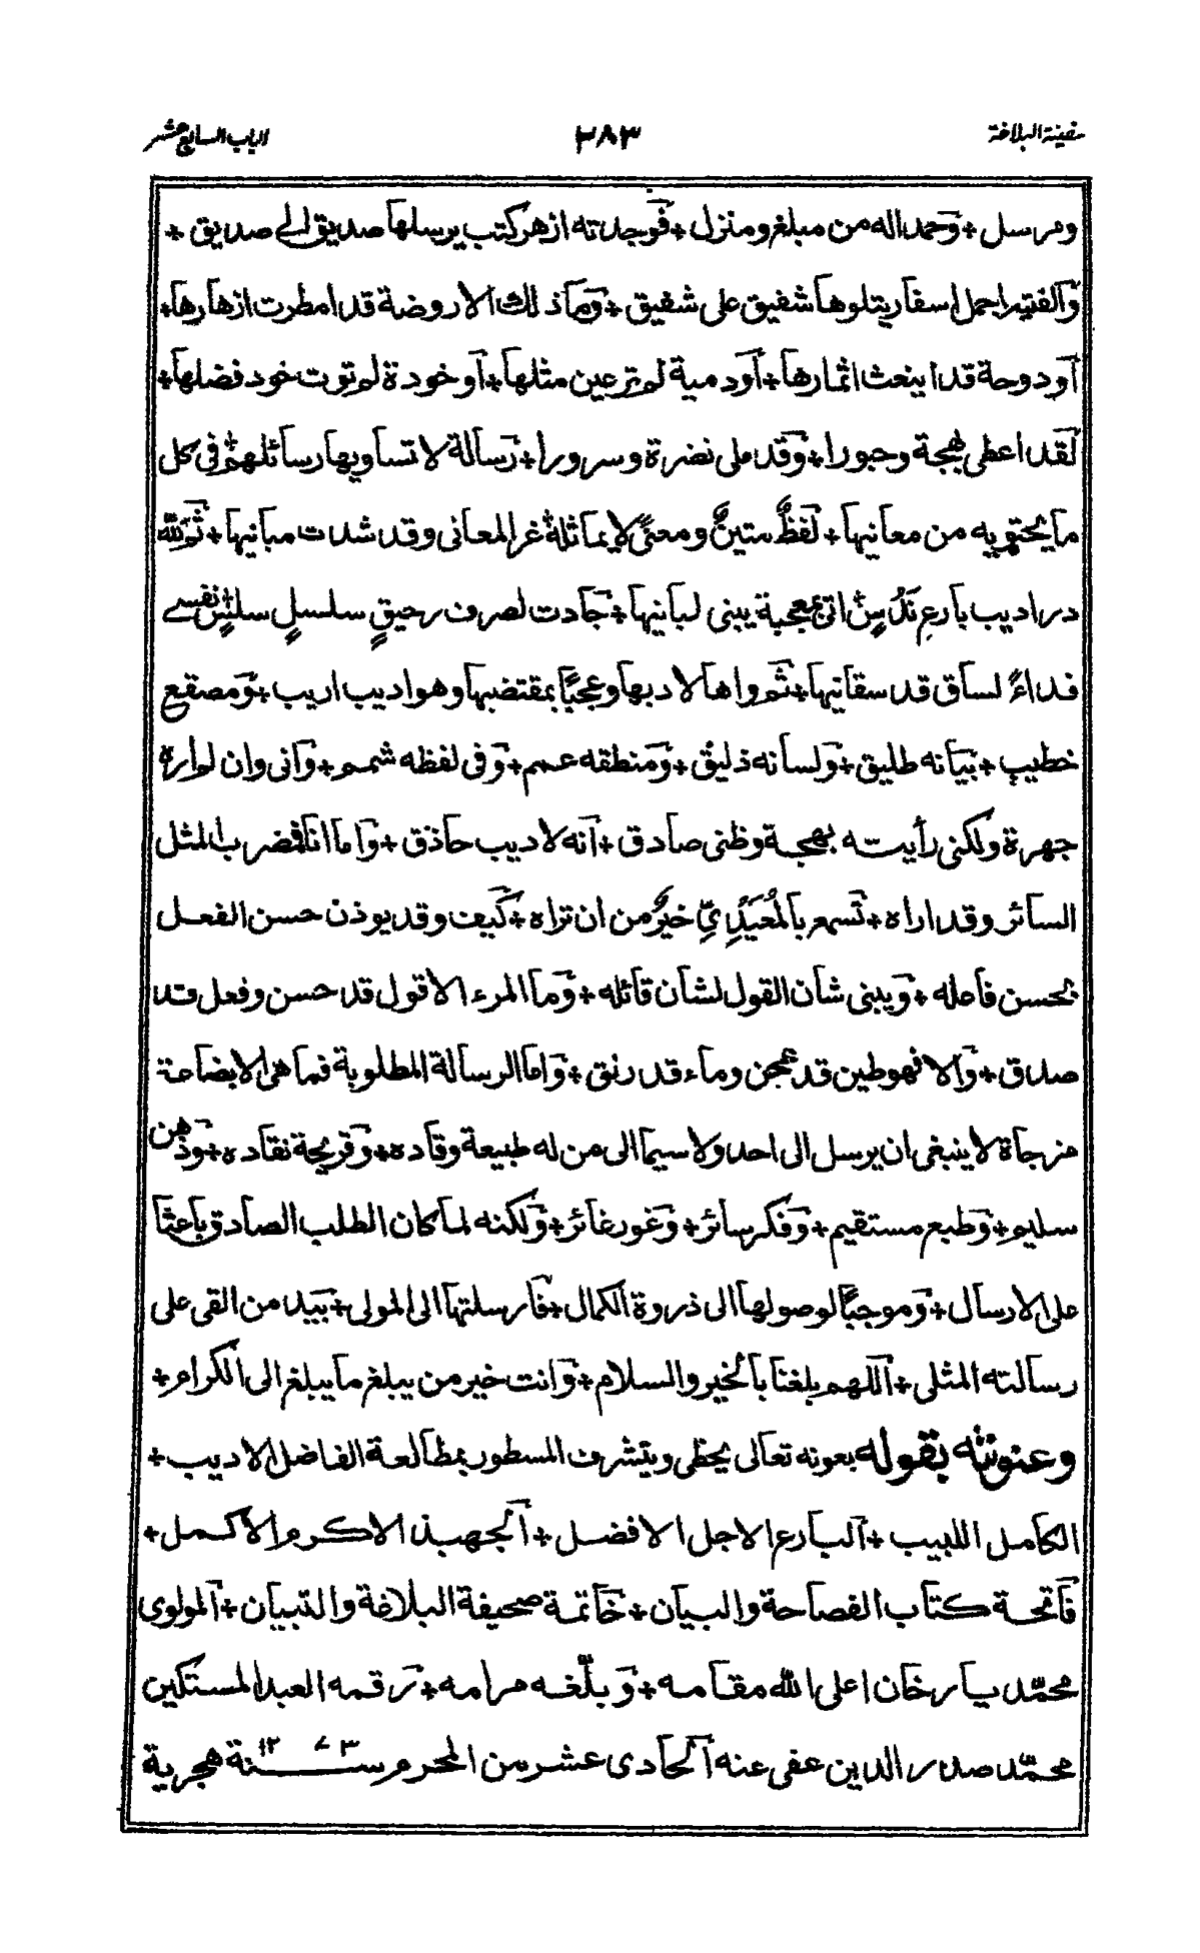 سفينة البلاغة ٢٨٣ الباب السابع عشر
ومرسل + وحمدا له من مبلغ ومنزل + فوجدته ازهر كتب يرسلها صديق الى صديق +
والفيته اجمل اسفار يتلوها شفيق على شفيق + وما ذلك الا روضة قد امطرت ازهارها +
او دوحة قد اينعث اثمارها + او دمية لم تر عين مثلها + او خودة لم توت خود فضلها +
لقد اعطى بهجة وحبورا + وقد ملى نضرة وسرورا + رسالة لا تساويها رسائلهم في كل
ما يحتويه من معانيها + لفظٌ متينٌ ومعنىً لا يماثلهٗ غر المعانى وقد شدت مبانيها + ثم لله
در اديب بارعٍ نَدُسٍ اتى بمعجبة يبنى لبانيها + جادت لصرف رحيقٍ سلسلٍ سلسٍ نفسے
فداءً لساق قد سقانيها + ثم واها لادبها وعجبًا بمقتضبها وهو اديب اريب + ومصقع
خطيب + بيانه طليق + ولسانه ذليق + ومنطقه عمم + وفى لفظه شمم + وانى وان لم اره
جهرة ولكنى رأيته بهجة وظنى صادق + انه لاديب حاذق + واما انا فضرب المثل
السائر وقد اراه + تسمع بالمُعَيْدِيِّ خيرٌ من ان تراه + كيف وقد يوذن حسن الفعل
بحسن فاعله + ويبنى شان القول لشان قائله + وما المرء الا قول قد حسن وفعل قد
صدق + والا فهو طين قد عجن وماء قد رنق + واما الرسالة المطلوبة فما هى الا بضاعة
مزجاة لا ينبغى ان يرسل الى احد ولا سيما الى من له طبيعة وقاده + وقريحة نقاده + وذهن
سليم + وطبع مستقيم + وفكر سائر + وغور غائر + ولكنه لما كان الطلب الصادق باعثا
على الارسال + وموجبًا لوصولها الى ذروة الكمال + فارسلتها الى المولى + بيد من القى على
رسالته المثلى + اللهم بلغنا بالخير والسلام + وانت خير من يبلغ ما يبلغ الى الكرام +
وعنونته بقوله بعونه تعالى يحظى ويتشرف المسطور بمطالعة الفاضل الاديب +
الكامل اللبيب + البارع الاجل الافضل + الجهبذ الاكرم الاكمل +
فاتحة كتاب الفصاحة والبيان + خاتمة صحيفة البلاغة والتبيان + المولوى
محمّد يار خان اعلى الله مقامه + وبلّغه مرامه + رقمه العبد المستكين
محمّد صدر الدين عفى عنه الحادى عشر من المحرم سنة ١٢٧٣ هجرية